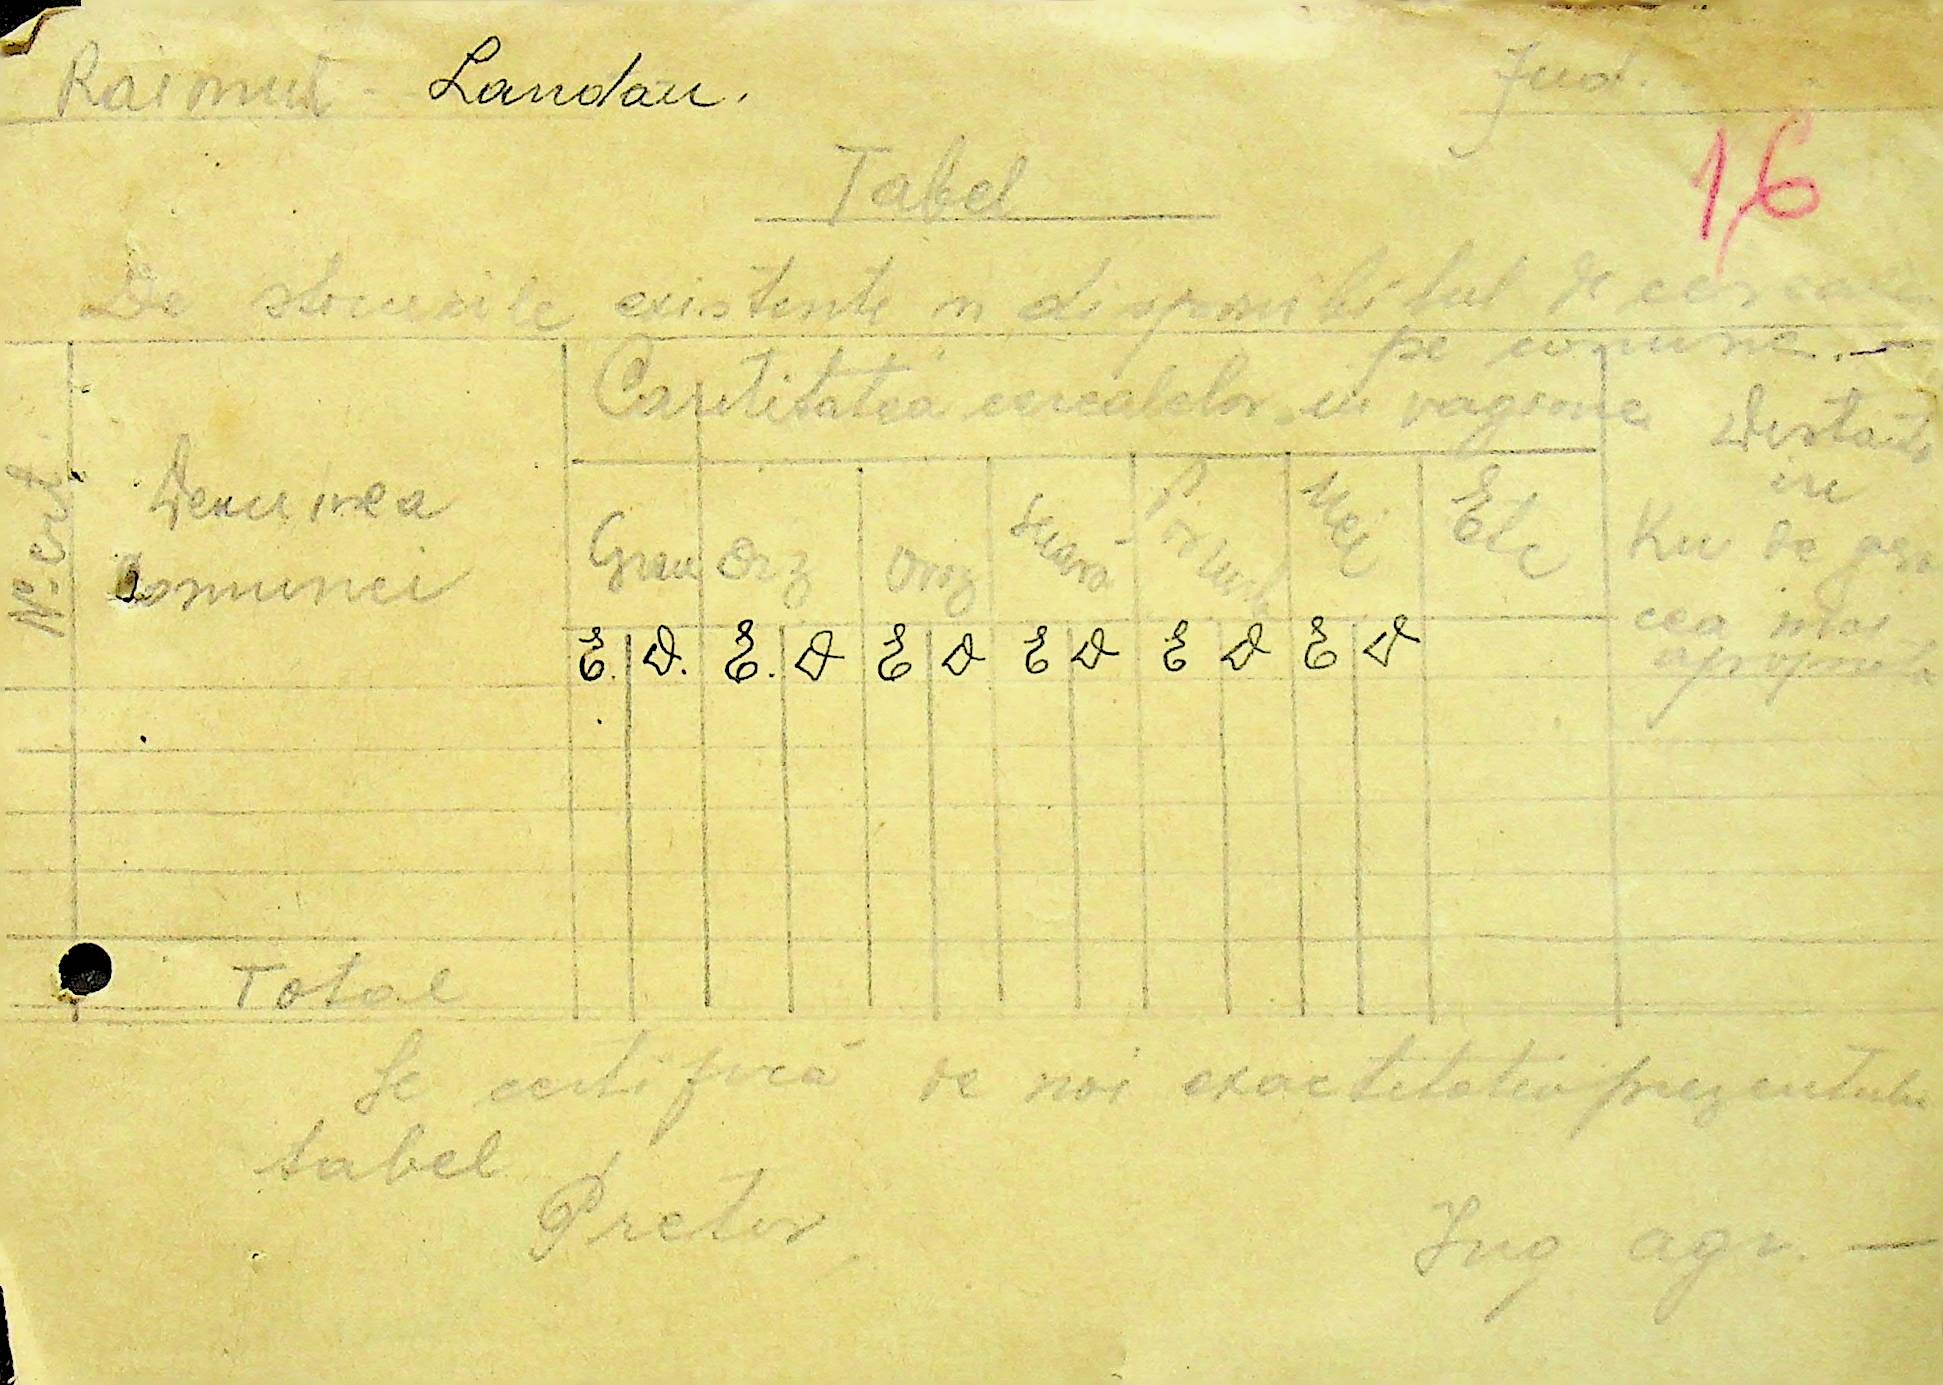 Raionul - Landau. Jud.
16
Tabel
De stocurile existente in disponibilul de cereale
pe comune. —
No. crt.
Denumirea
Comunei
Cantitatea cerealelor in vagoane
Grau Orz Ovăz Secară Mei Etc
E. D. E. D E D E D E D E D
Distanta
in
Km de gra
cea mai
apropiată
Total
Se certifică de noi exactitatea prezentului
tabel
Pretor
Ing agr. —